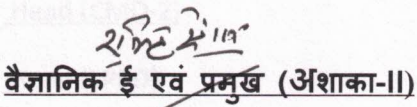 वैज्ञानिक ई एवं प्रमुख (अशाका-II)